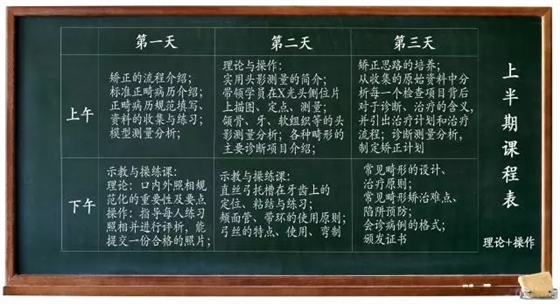 第一天
第二天
第三天
上午
矫正的流程介绍;
标准正畸病历介绍;
正畸病历规范填写、
资料的收集与练习;
模型测量分析;
理论与操作:
实用头影测量的简介;
带领学员在X光头侧位片
上描图、定点、测量;
颌骨、牙、软组织等的头
影测量分析; 各种畸形的
主要诊断项目介绍;
矫正思路的培养;
从收集的原始资料中分
析每一个检查项目背后
对于诊断、治疗的含义,
并引出治疗计划和治疗
流程; 诊断测量分析,
制定矫正计划
下午
示教与操练课:
理论: 口内外照相规
范化的重要性及要点
操作: 指导每人练习
照相并进行评析, 能
提交一份合格的照片;
示教与操练课:
直丝弓托槽在牙齿上的
定位、粘结与练习;
颊面管、带环的使用原则;
弓丝的特点、使用、弯制
常见畸形的设计、
治疗原则;
常见畸形矫治难点、
陷阱预防;
会诊病例的格式;
颁发证书
上半期课程表
理论+操作